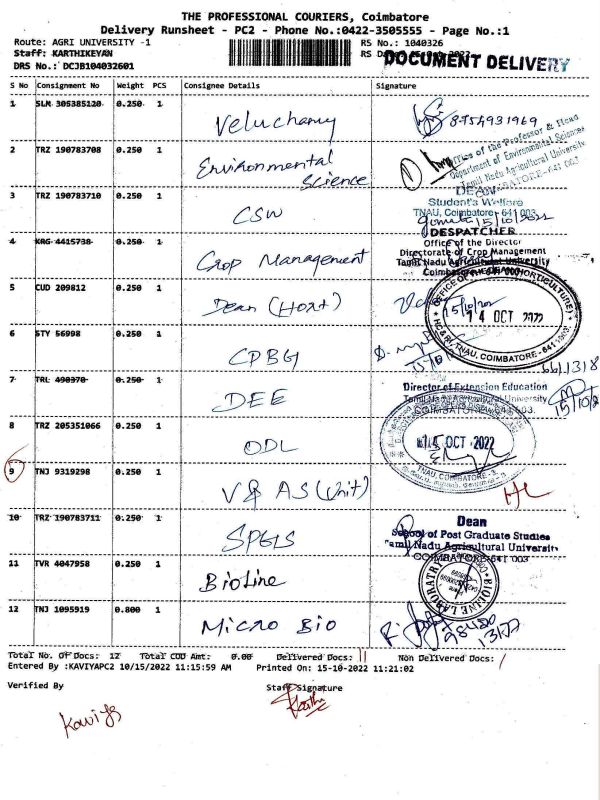 THE PROFESSIONAL COURIERS, Coimbatore
Delivery Runsheet - PC2 - Phone No.:0422-3505555 - Page No.:1
Route: AGRI UNIVERSITY -1
RS No.: 1040326
Staff: KARTHIKEYAN
DOCUMENT DELIVERY
DRS No.: DCJB104032601
S No Consignment No Weight PCS Consignee Details Signature
1 SLM 305385120 0.250 1 Veluchamy 8754931969
2 TRZ 190783708 0.250 1 Environmental Science
Office of the Professor & Head
Department of Environmental Sciences
Tamil Nadu Agricultural University
COIMBATORE-641 003
3 TRZ 190783710 0.250 1 CSW
DEAN
Student's Welfare
TNAU, Coimbatore-641 003
15/10/2022
4 KRG 4415738 0.250 1 Crop Management
DESPATCHER
Office of the Director
Directorate of Crop Management
Tamil Nadu Agricultural University
5 CUD 209812 0.250 1 Dean (Hort)
15/10/202
OFFICE OF THE DEAN (HORTICULTURE)
14 OCT 2022
HC & RI, TNAU, COIMBATORE - 641 003.
6 STY 56998 0.250 1 CPBG
15/10/
6611318
7 TRL 490370 0.250 1 DEE
Director of Extension Education
Tamil Nadu Agricultural University
COIMBATORE-641 003.
15/10/2
8 TRZ 205351066 0.250 1 ODL
15 OCT 2022
TNAU, COIMBATORE-3.
9 TNJ 9319298 0.250 1 V & AS (Unit)
10 TRZ 190783711 0.250 1 SPGS
Dean
School of Post Graduate Studies
Tamil Nadu Agricultural University
COIMBATORE-641 003
11 TVR 4047958 0.250 1 Bioline
BIOLINE LABORATRY
12 TNJ 1095919 0.800 1 Micro Bio
98430
13177
Total No. Of Docs: 12 Total COD Amt: 0.00 Delivered Docs: 11 Non Delivered Docs: 1
Entered By :KAVIYAPC2 10/15/2022 11:15:59 AM Printed On: 15-10-2022 11:21:02
Verified By Staff Signature
Kaviya